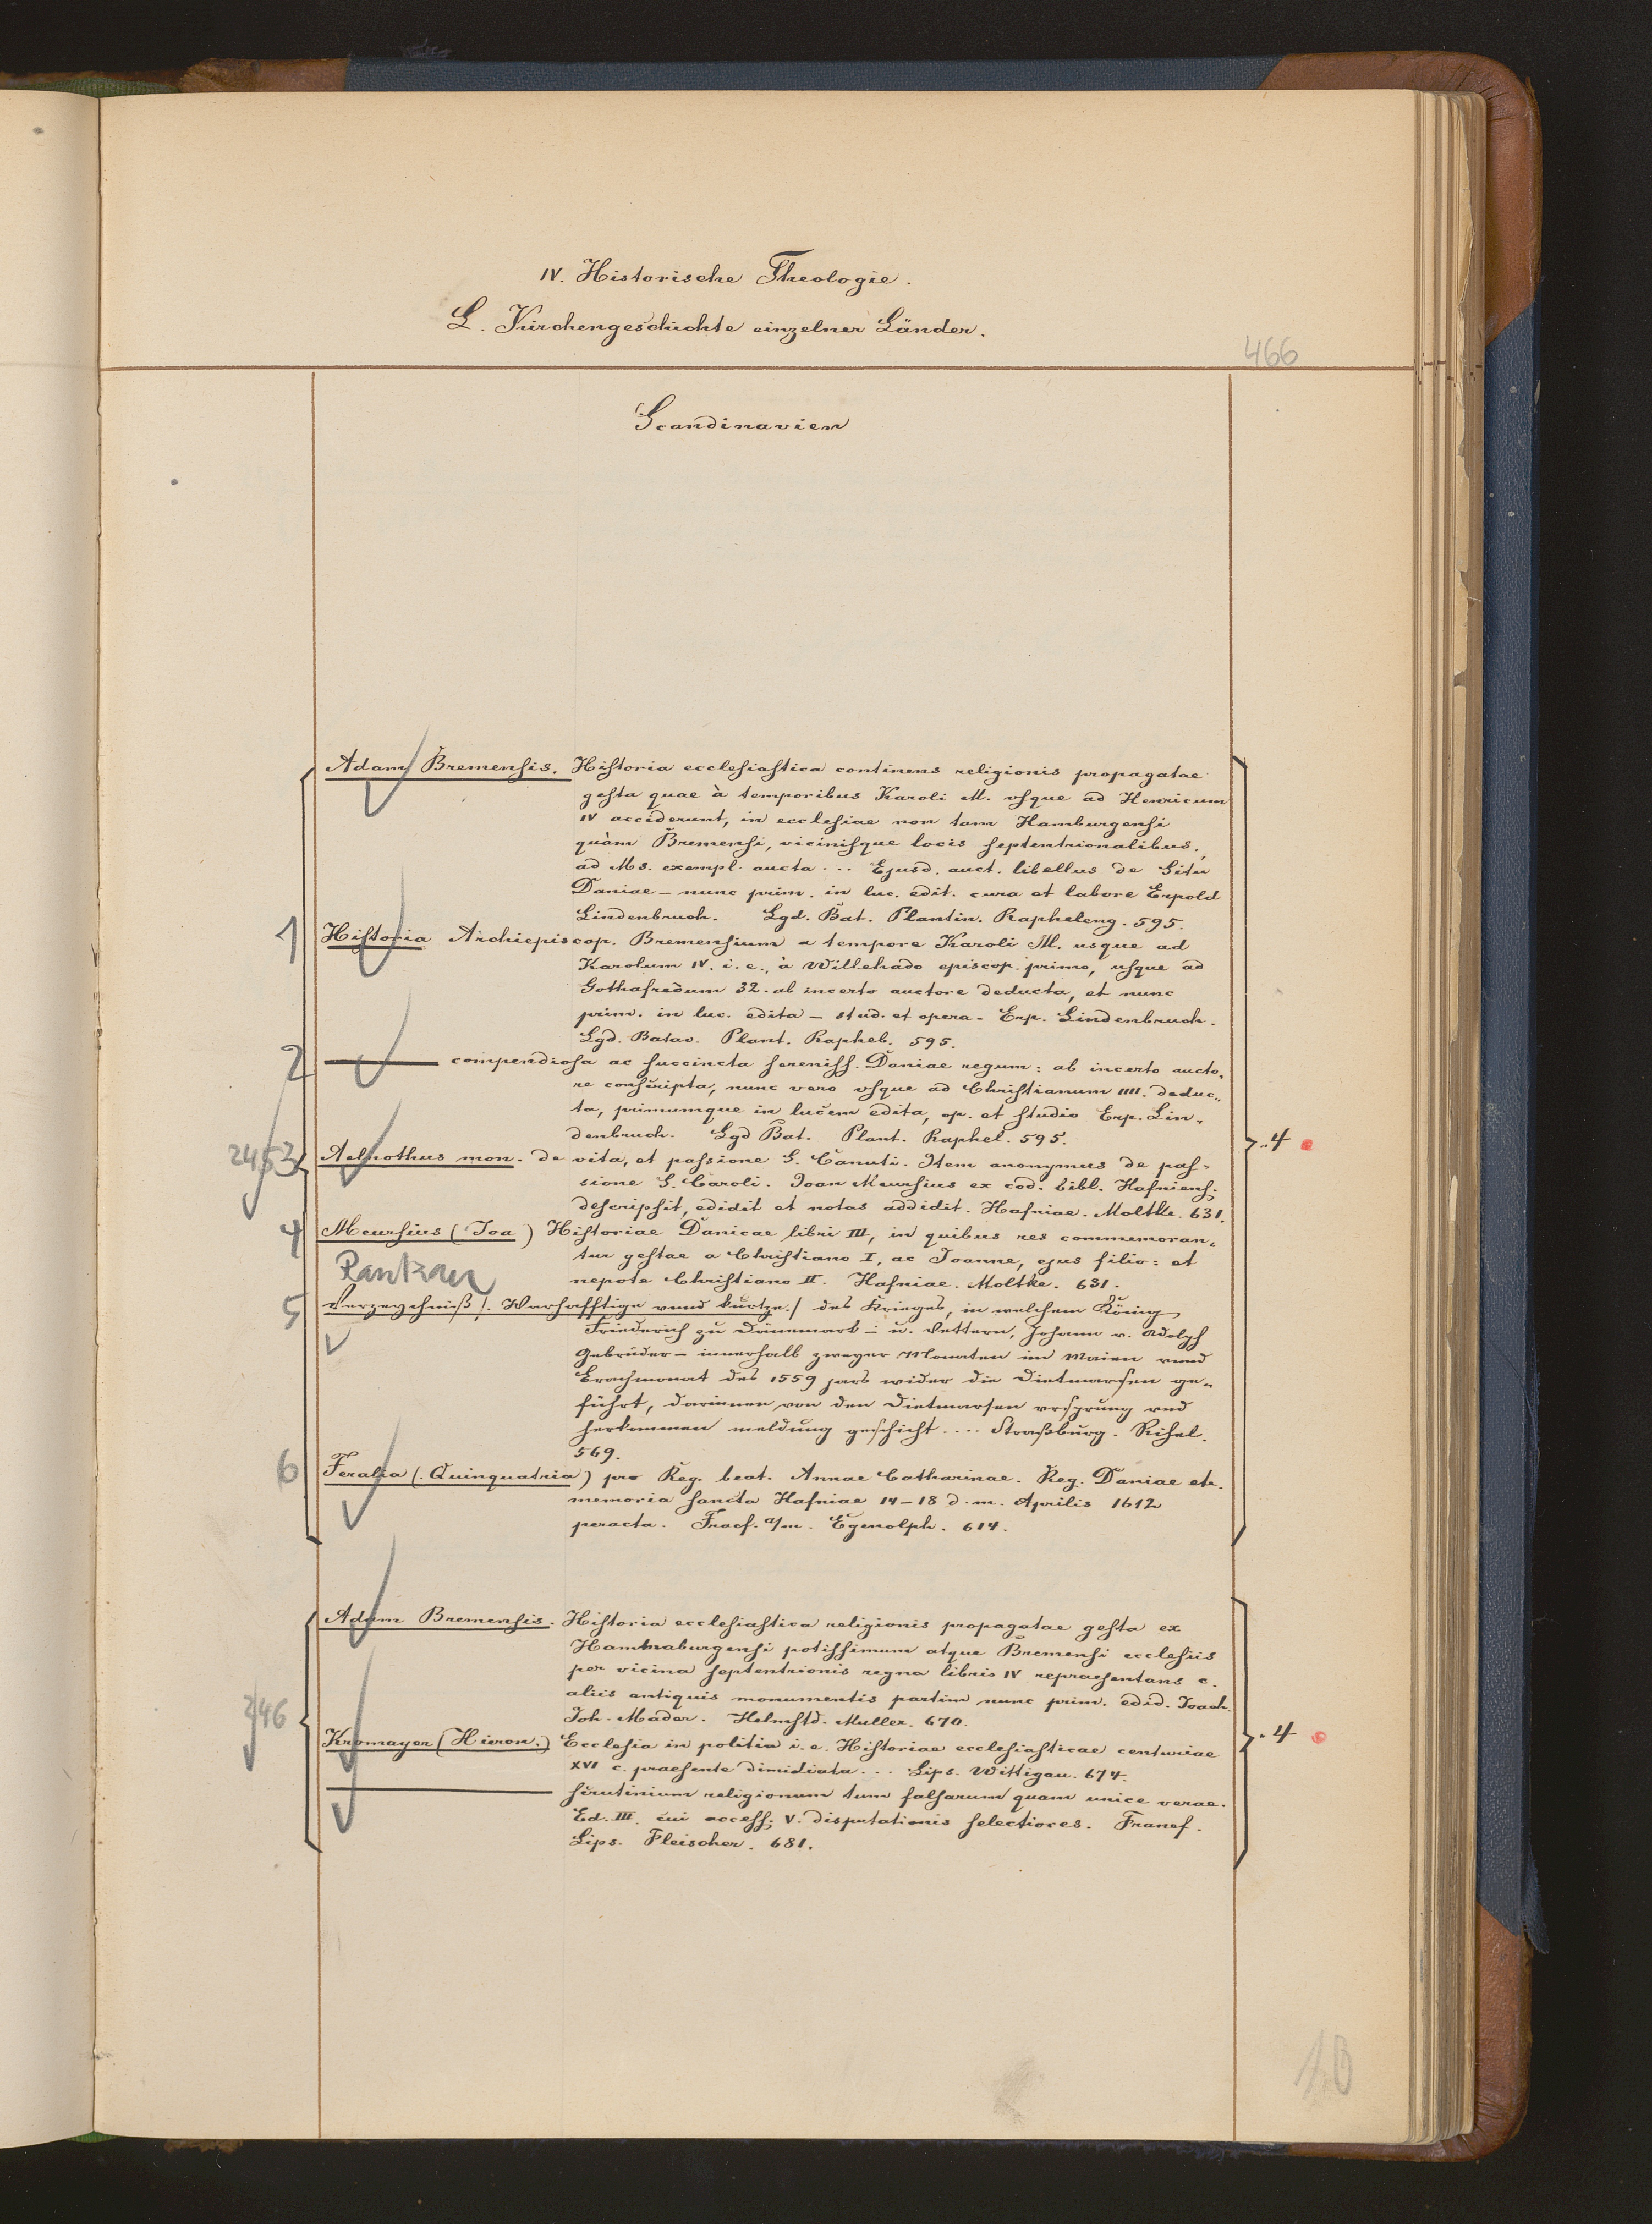 IV. Historische Theologie.
L. Kirchengeschichte einzelner Länder.
466
Scandinavien
Adam Bremensis. Historia ecclesiastica continens religionis propagatae
gesta quae à temporibus Karoli M. vsque ad Henricum
IV acciderunt, in ecclesiae non tam Hamburgensi
quàm Bremensi, vicinisque locis septentrionalibus.,
ad Ms. exempl. aucta ... Ejusd. auct. libellus de Situ
Daniae – nunc prim. in luc. edit. cura et labore Erpold
Lindenbruch. Lgd. Bat. Plantin. Rapheleng. 595.
1 Historia Archiepiscop. Bremensium a tempore Karoli M. usque ad
Karolum IV. i. e., à Willehado episcop. primo, usque ad
Gothafredum 32. ab incerto auctore deducta, et nunc
prim. in luc. edita – stud. et opera – Erp. Lindenbruch.
Lgd. Batav. Plant. Raphel. 595.
2 ——— compendiosa ac succincta sereniss. Daniae regum: ab incerto aucto,
re conscripta, nunc vero vsque ad Christianum IIII. deduc„
ta, primumque in lucem edita, op. et studio Erp. Lin„
denbruch. Lgd Bat. Plant. Raphel. 595.
245 3 Aelnothus mon. de vita, et passione S. Canuti. Item anonymus de pas„
sione S. Caroli. Joan Meursius ex cod. bibl. Hafniens;
descripsit, edidit et notas addidit. Hafniae. Moltke. 631.
..4
4 Meursius (Joa) Historiae Danicae libri III, in quibus res commemoran„
tur gestae a Christiano I, ac Joanne, ejus filio: et
nepote Christiano II. Hafniae. Moltke. 631.
Rantzau
5 Verzeychniß /. Warhafftige vnnd kurtze./ des Krieges, in welchem Köning
Friederich zu Dänemark – u. Vettern, Johann v. Adolph
Gebrüder – innerhalb zweyer Monaten im Maien vnnd
Brachmonat des 1559 jars wider die Dietmarsen ge„
führt, darinnen von den Dietmarsen vrsprung vnd
herkommen meldung geschicht .... Straßburg. Rihel.
569.
6 Feralia (. Quinquatria) pro Reg. beat. Annae Catharinae. Reg. Daniae etc.
memoria sancta Hafniae 14–18 d. m. Aprilis 1612
peracta. Fracf. a/m. Egenolph. 614.
Adam Bremensis. Historia ecclesiastica religionis propagatae gesta ex
Hammaburgensi potissimum atque Bremensi ecclesiis
per vicina septentrionis regna libris IV repraesentans c.
aliis antiquis monumentis partim nunc prim. edid. Joach.
Joh. Mader. Helmstd. Muller. 670.
246
Kromayer (Hieron.) Ecclesia in politia i. e. Historiae ecclesiasticae centuriae
XVI c. praesente dimidiata ... Lips. Wittigau. 674.
. 4
——— scrutinium religionum tum falsarum quam unice verae.
Ed. III. cui access; V. disputationis selectiores. Francf.
Lips. Fleischer. 681.
10